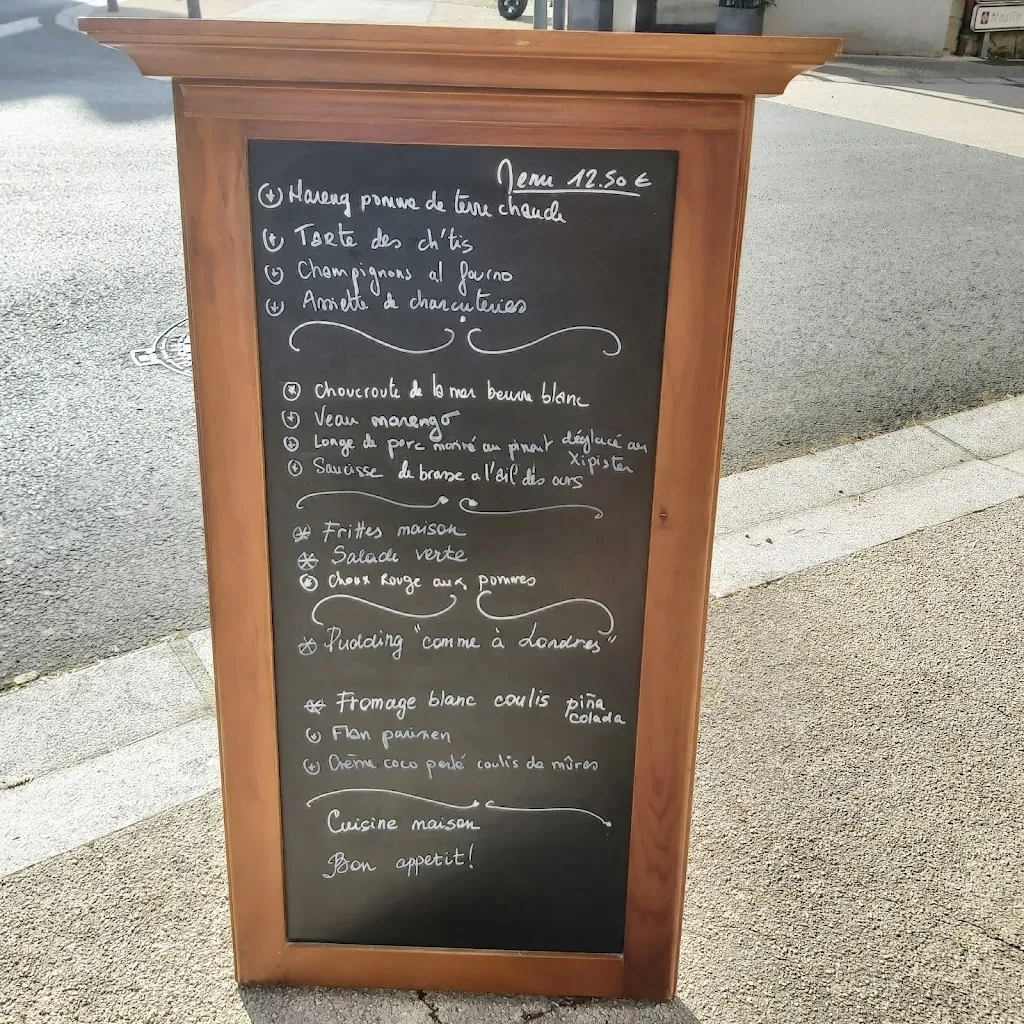 Menu 12.50 €
Hareng pomme de terre chaude
Tarte des ch'tis
Champignons al forno
Assiette de charcuteries
Choucroute de la mer beurre blanc
Veau marengo
Longe de porc mariné au piment déglacé au
Xipister
Saucisse de brasse a l'ail des ours
Frittes maison
Salade verte
Choux Rouge aux pommes
Pudding "comme à Londres"
Fromage blanc coulis piña
colada
Flan parisien
Crème coco perlé coulis de mûres
Cuisine maison
Bon appetit!